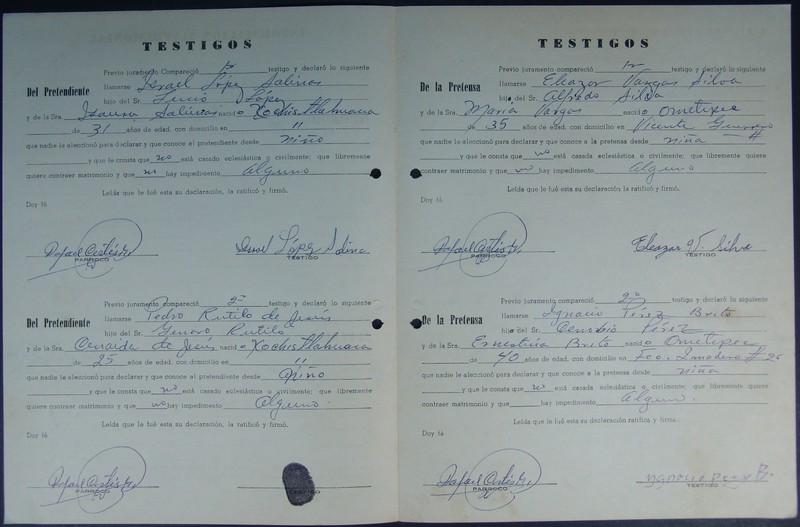 TESTIGOS
Previo juramento Compareció 1º testigo y declaró lo siguiente
Del Pretendiente llamarse Israel López Salinas
hijo del Sr. López
y de la Sra. Isaura Salinas nació Xochistlahuaca
de 31 años de edad con domicilio en "
que nadie le aleccionó para declarar y que conoce al pretendiente desde niño
y que le consta que no está casado eclesiástica o civilmente; que libremente
quiere contraer matrimonio y que no hay impedimento alguno
Leída que le fué esta su declaración, la ratificó y firmó.
Doy fé
PARROCO
Israel López Salina
TESTIGO
Previo juramento compareció 2º testigo y declaró lo siguiente
Del Pretendiente llamarse Pedro Rutilo de Jesús
hijo del Sr. Genaro Rutilo
y de la Sra. Cenaida de Jesús nació Xochistlahuaca
de 25 años de edad con domicilio en "
que nadie le aleccionó para declarar y que conoce al pretendiente desde niño
y que le consta que no está casado eclesiástica o civilmente; que libremente
quiere contraer matrimonio y que no hay impedimento alguno.
Leída que le fué esta su declaración, la ratificó y firmó.
Doy fé
PARROCO
TESTIGO
TESTIGOS
Previo juramento Compareció 1º testigo y declaró lo siguiente
De la Pretensa llamarse Eleazar Vargas Silva
hijo del Sr. Alfredo Silva
y de la Sra. María Vargas nació Ometepec
de 35 años de edad con domicilio en Vicente Guerrero #
que nadie le aleccionó para declarar y que conoce a la pretensa desde niña
y que le consta que no está casada eclesiástica o civilmente; que libremente quiere
contraer matrimonio y que no hay impedimento alguno
Leída que le fué esta su declaración la ratificó y firmó.
Doy fé
PARROCO
Eleazar V. Silva
TESTIGO
Previo juramento compareció 2º testigo y declaró lo siguiente
De la Pretensa llamarse Ignacio Pérez Brito
hijo del Sr. Cenobio Pérez
y de la Sra. Ernestina Brito nació Ometepec
de 40 años de edad con domicilio en Fco. I. Madero # 26
que nadie le aleccionó para declarar y que conoce a la pretensa desde niña
y que le consta que no está casada eclesiástica o civilmente; que libremente quiere
contraer matrimonio y que no hay impedimento alguno.
Leída que le fué esta su declaración ratifica y firmó.
Doy fé
PARROCO
TESTIGO